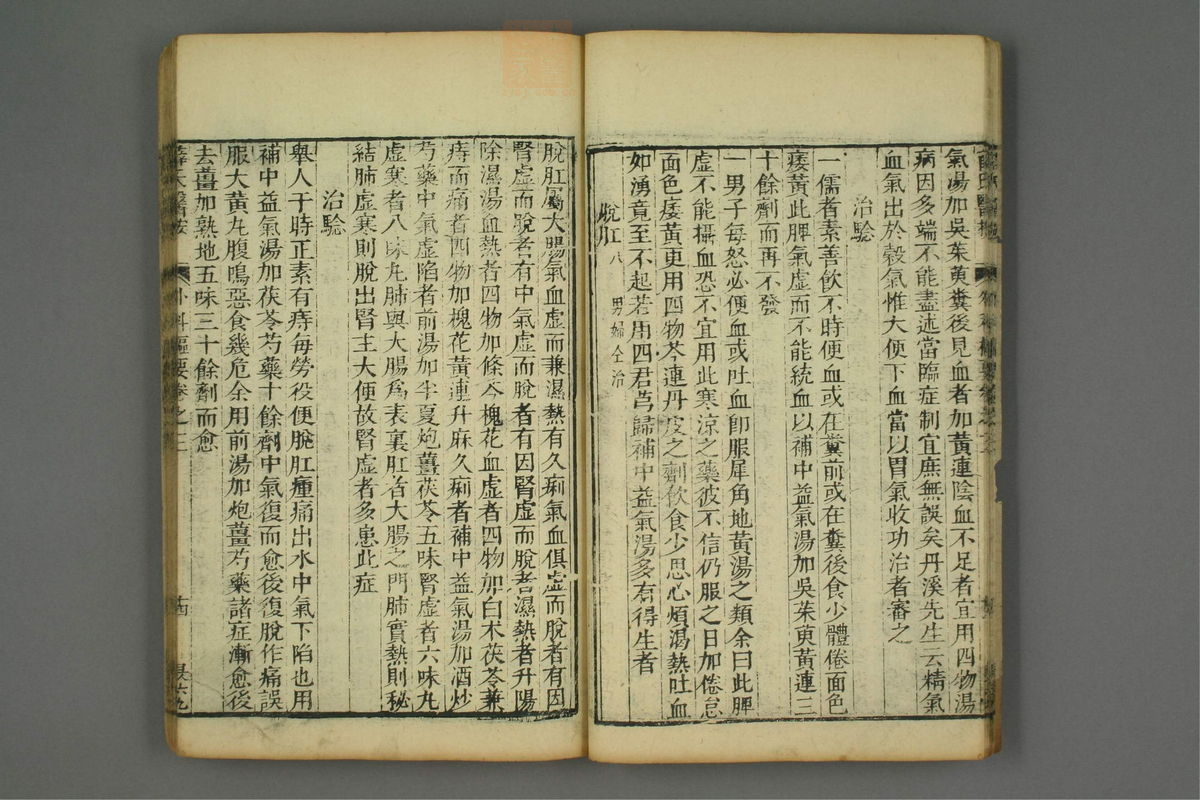 氣湯加吳茱萸糞後見血者加黃連陰血不足者宜用四物湯
病因多端不能盡述當臨症制宜庶無誤矣丹溪先生云精氣
血氣出於穀氣惟大便下血當以胃氣收功治者審之
治驗
一儒者素善飲不時便血或在糞前或在糞後食少體倦面色
痿黃此脾氣虛而不能統血以補中益氣湯加吳茱萸黃連三
十餘劑而再不發
一男子每怒必便血或吐血卽服犀角地黃湯之類余曰此脾
虛不能攝血恐不宜用此寒涼之藥彼不信仍服之日加倦怠
面色痿黃更用四物芩連丹皮之劑飲食少思心煩渴熱吐血
如湧竟至不起若用四君芎歸補中益氣湯多有得生者
脫肛八 男婦仝治
脫肛屬大腸氣血虛而兼濕熱有久痢氣血俱虛而脫者有因
腎虛而脫者有中氣虛而脫者有因腎虛而脫者濕熱者升陽
除濕湯血熱者四物加條芩槐花血虛者四物加白朮茯苓兼
痔而痛者四物加槐花黃連升麻久痢者補中益氣湯加酒炒
芍藥中氣虛陷者前湯加半夏炮薑茯苓五味腎虛者六味丸
虛寒者八味丸肺與大腸爲表裏肛者大腸之門肺實熱則秘
結肺虛寒則脫出腎主大便故腎虛者多患此症
治驗
舉人于時正素有痔每勞役便脫肛腫痛出水中氣下陷也用
補中益氣湯加茯苓芍藥十餘劑中氣復而愈後復脫作痛誤
服大黃丸腹鳴惡食幾危余用前湯加炮薑芍藥諸症漸愈後
去薑加熟地五味三十餘劑而愈
薛氏醫按 外科樞要卷之三 十四